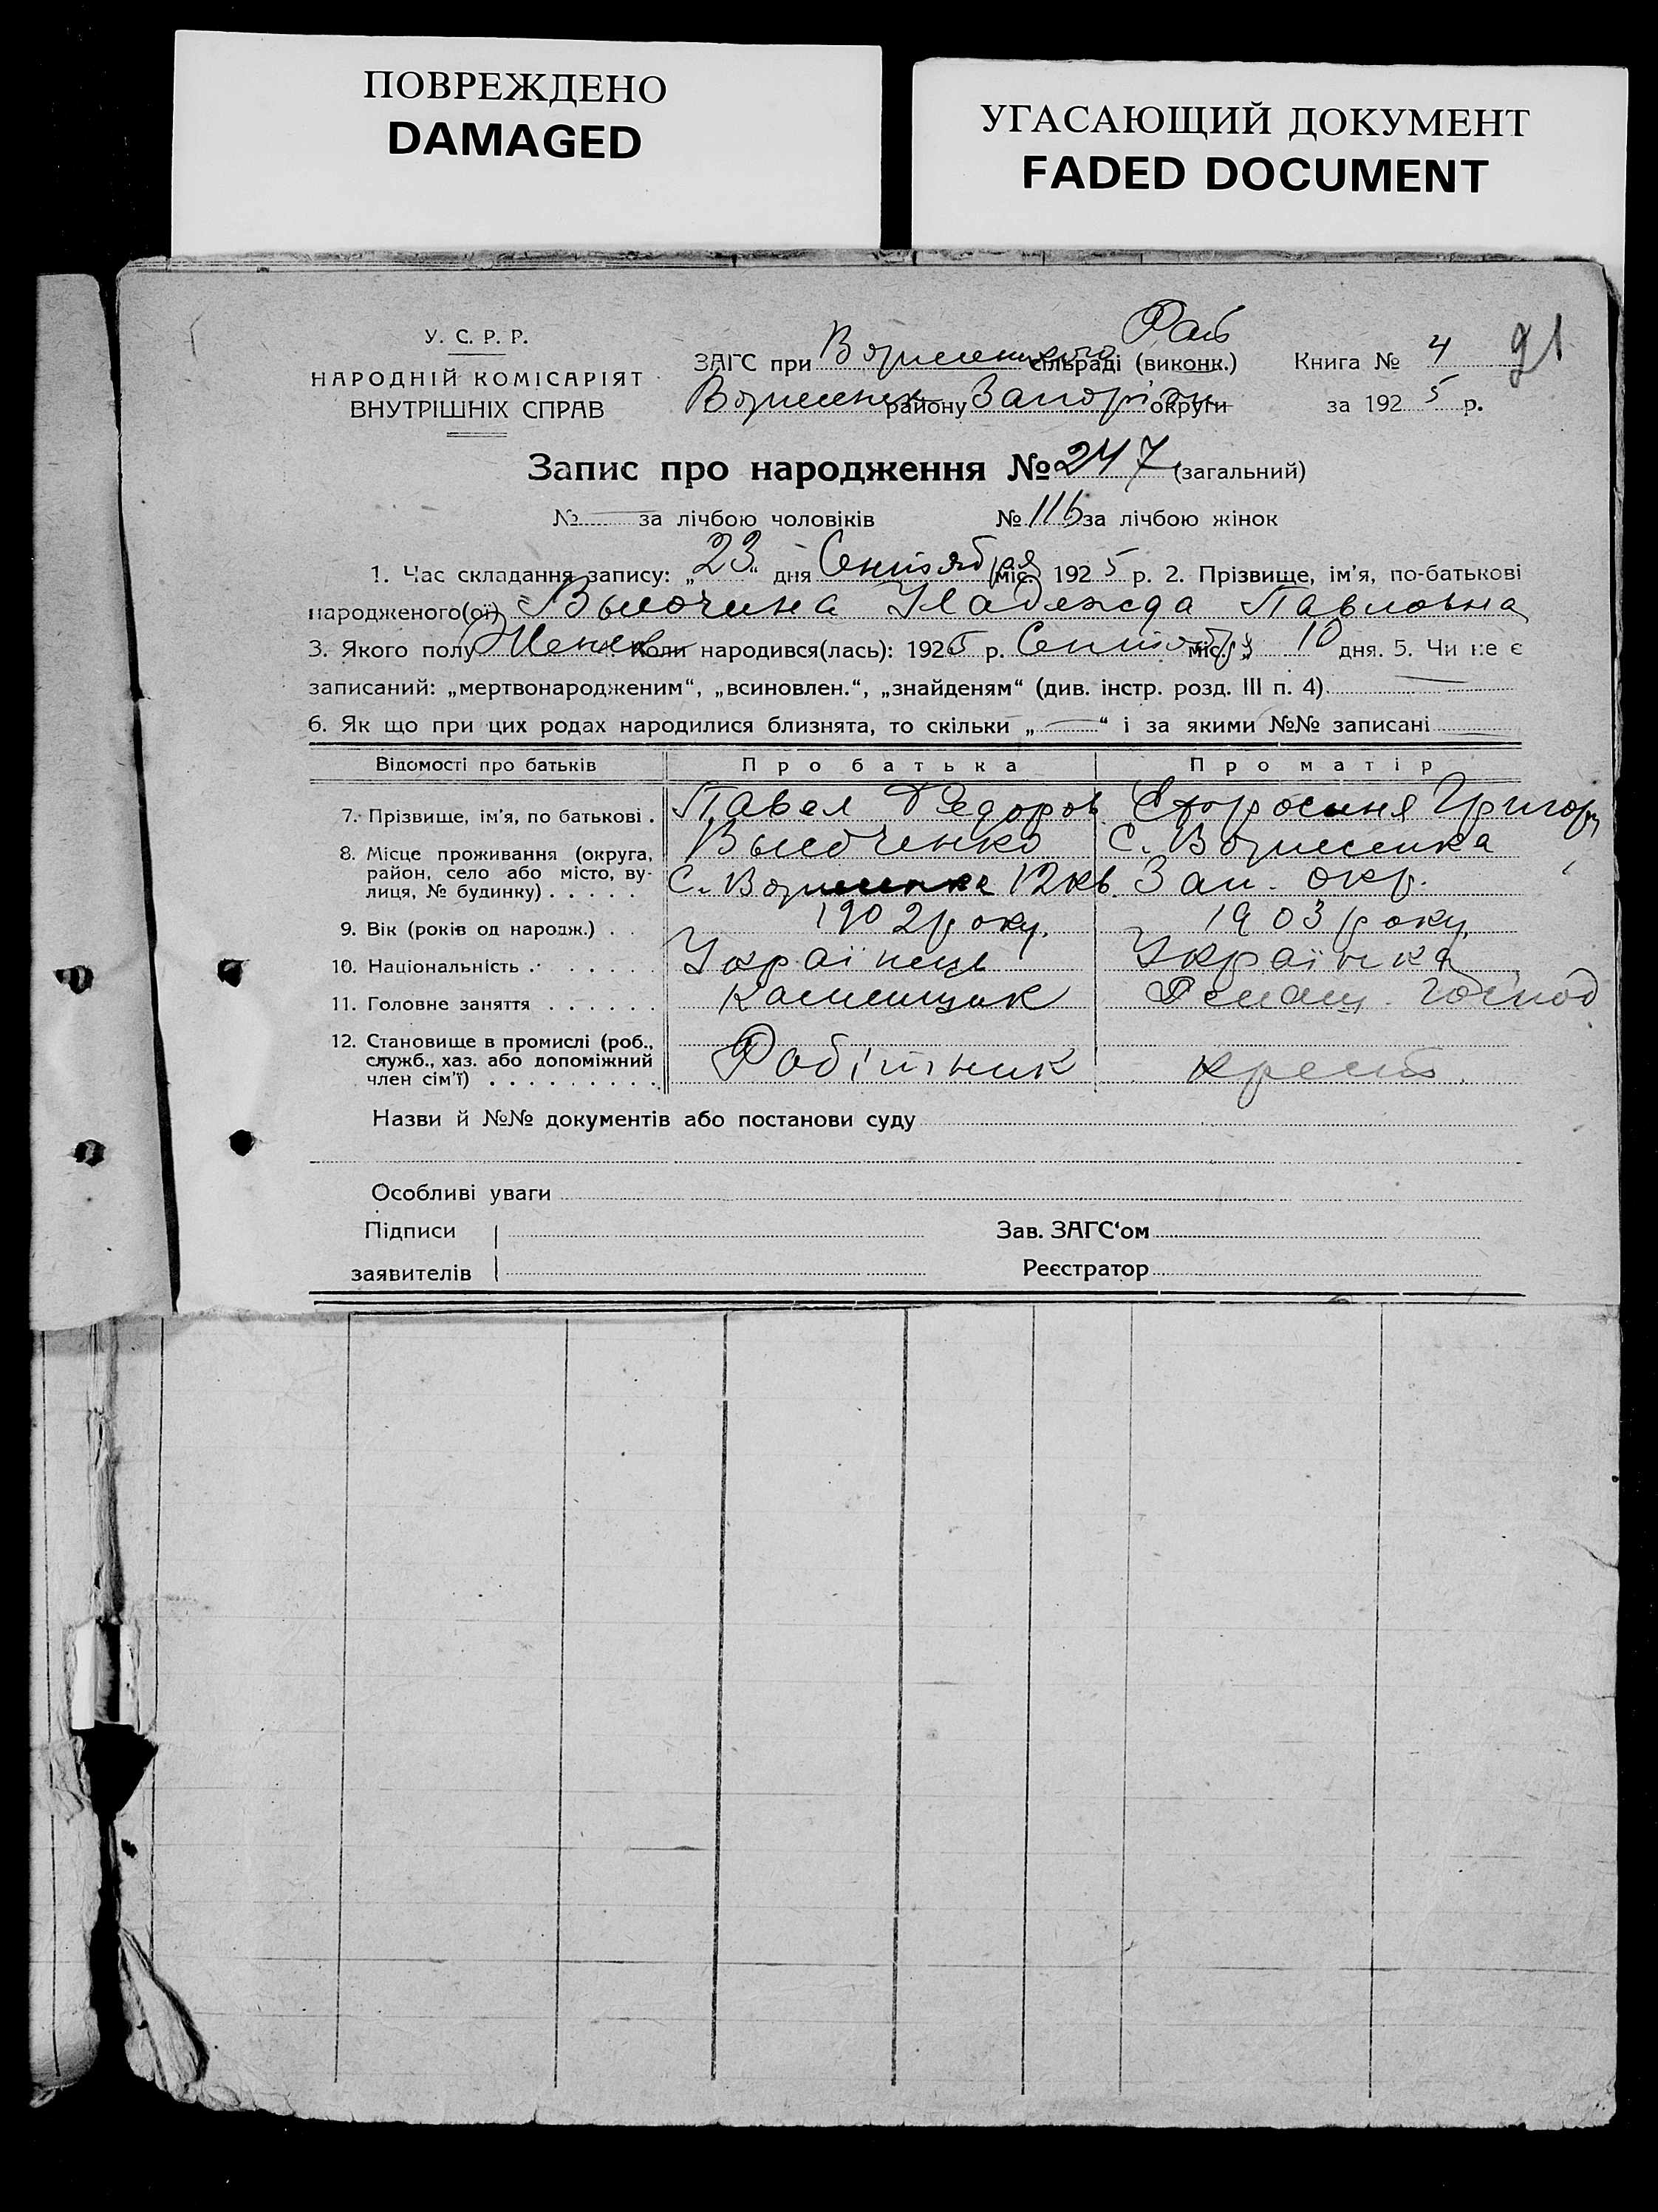 ПОВРЕЖДЕНО
DAMAGED
УГАСАЮЩИЙ ДОКУМЕНТ
FADED DOCUMENT
У. С. Р. Р.
НАРОДНІЙ КОМІСАРІЯТ
ВНУТРІШНІХ СПРАВ
Рай
ЗАГС при Вознесенского сільраді (виконк.)
Вознесенск району Запоріж округи
Книга № 4 91
за 1925 р.
Запис про народження № 247 (загальний)
№ — за лічбою чоловіків № 116 за лічбою жінок
1. Час складання запису: „23“ дня Сентября міс. 1925 р. 2. Прізвище, ім'я, по-батькові
народженого(ої) Надежда Павловна
3. Якого полу Женск Коли народився(лась): 1925 р. Сентября міс. „ 10 дня. 5. Чи не є
записаний: „мертвонародженим“, „всиновлен.“, „знайденям“ (див. інстр. розд. III п. 4) —
6. Як що при цих родах народилися близнята, то скільки „—“ і за якими №№ записані —
Відомості про батьків Про батька Про матір
7. Прізвище, ім'я, по батькові . Павел Федоров Григор
8. Місце проживання (округа, район, село або місто, вулиця, № будинку) . . . . .
С. Вознесенка
С. Вознесенка 12 кв. Зап. окр.
9. Вік (років од народж.) . . 1902 року. 1903 року.
10. Національність . . . . . . Українець Українка
11. Головне заняття . . . . . . Каменщик Домащ. господ
12. Становище в промислі (роб., служб., хаз. або допоміжний член сім'ї) . . . . . . . . . Робітник крест.
Назви й №№ документів або постанови суду
Особливі уваги
Підписи
заявителів
Зав. ЗАГС'ом
Реєстратор